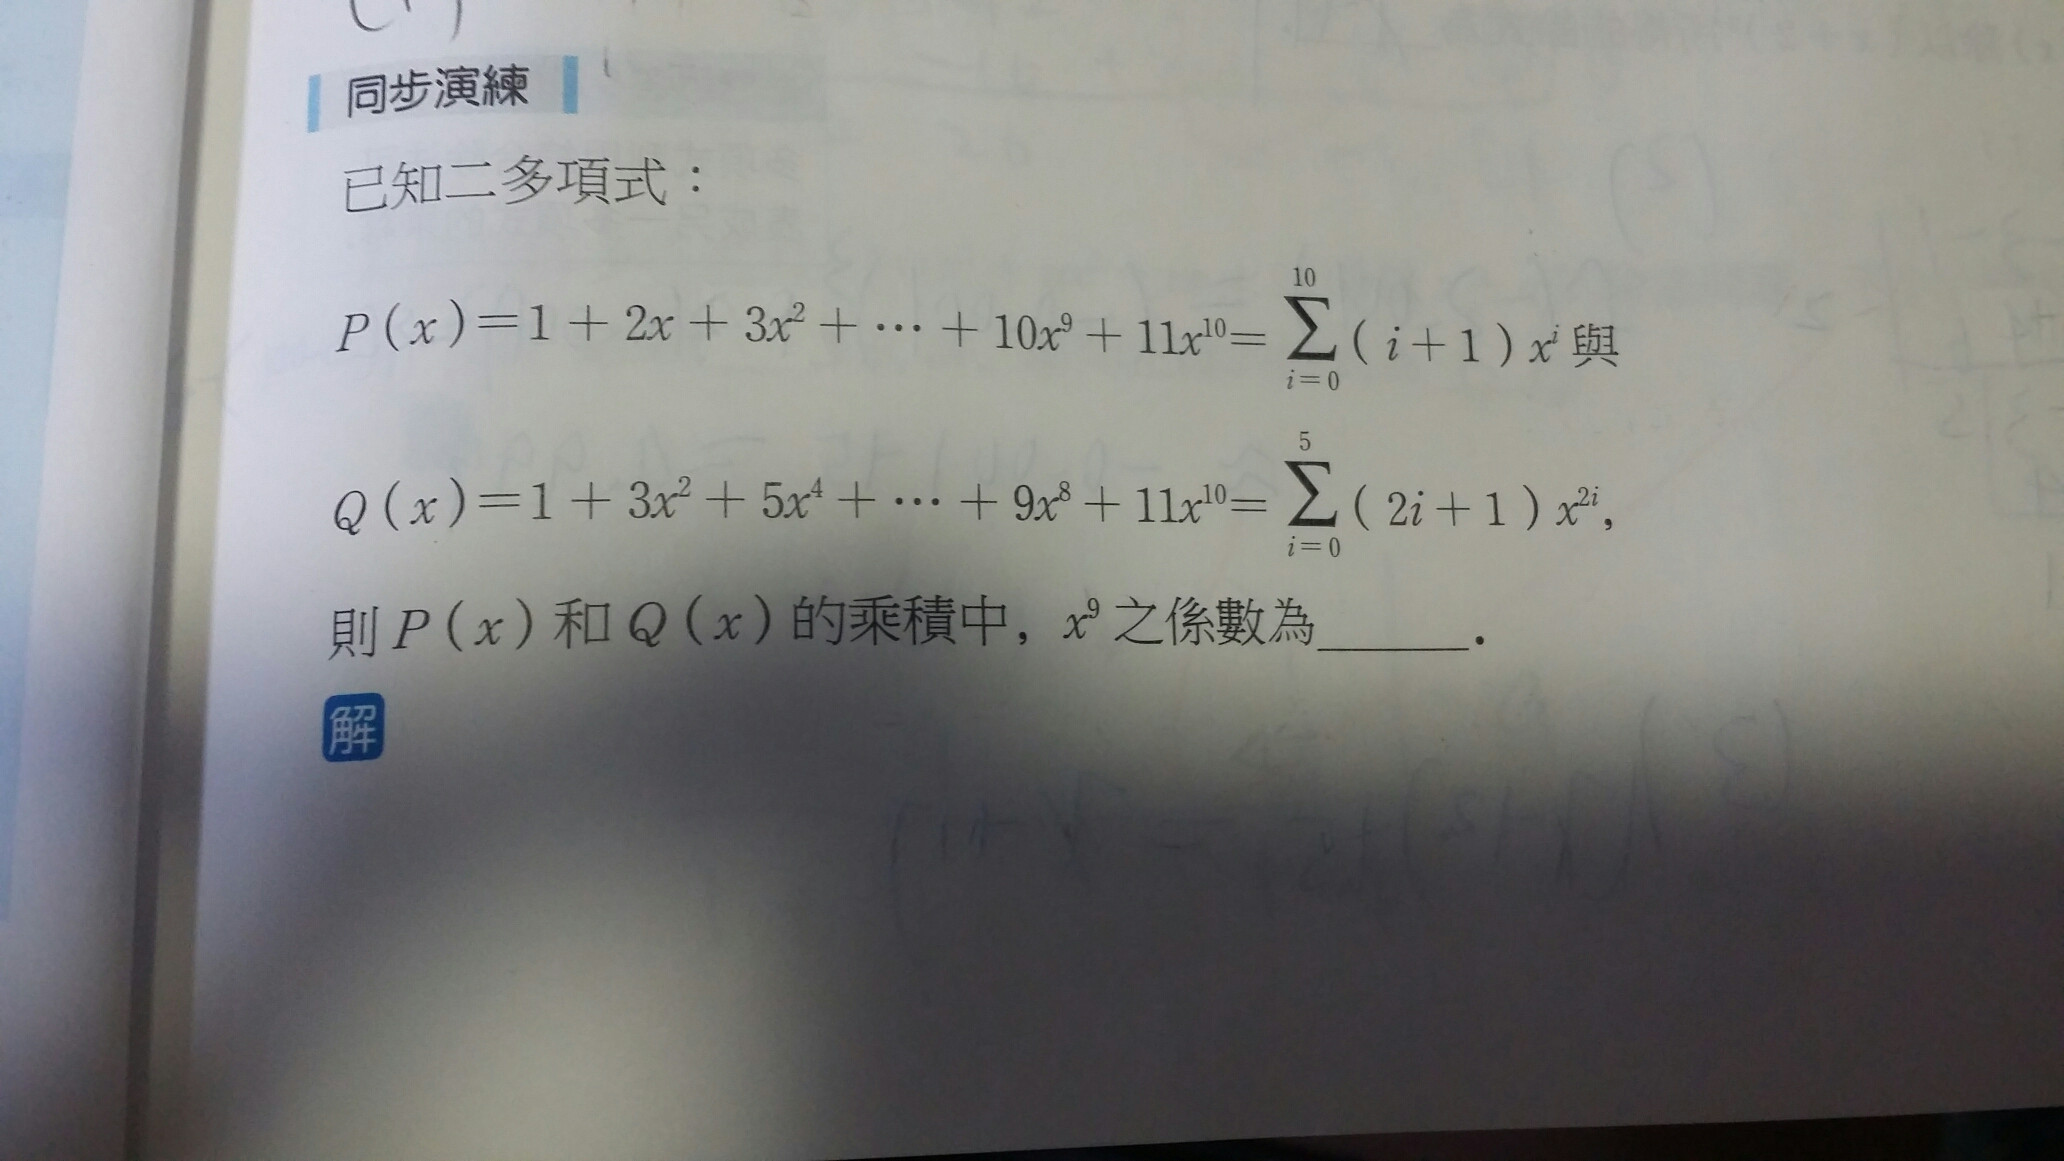 同步演練
已知二多項式：
P(x)=1+2x+3x²+⋯+10x⁹+11x¹⁰=∑_{i=0}^{10}(i+1)xⁱ與
Q(x)=1+3x²+5x⁴+⋯+9x⁸+11x¹⁰=∑_{i=0}^{5}(2i+1)x²ⁱ,
則P(x)和Q(x)的乘積中, x⁹之係數為______.
解